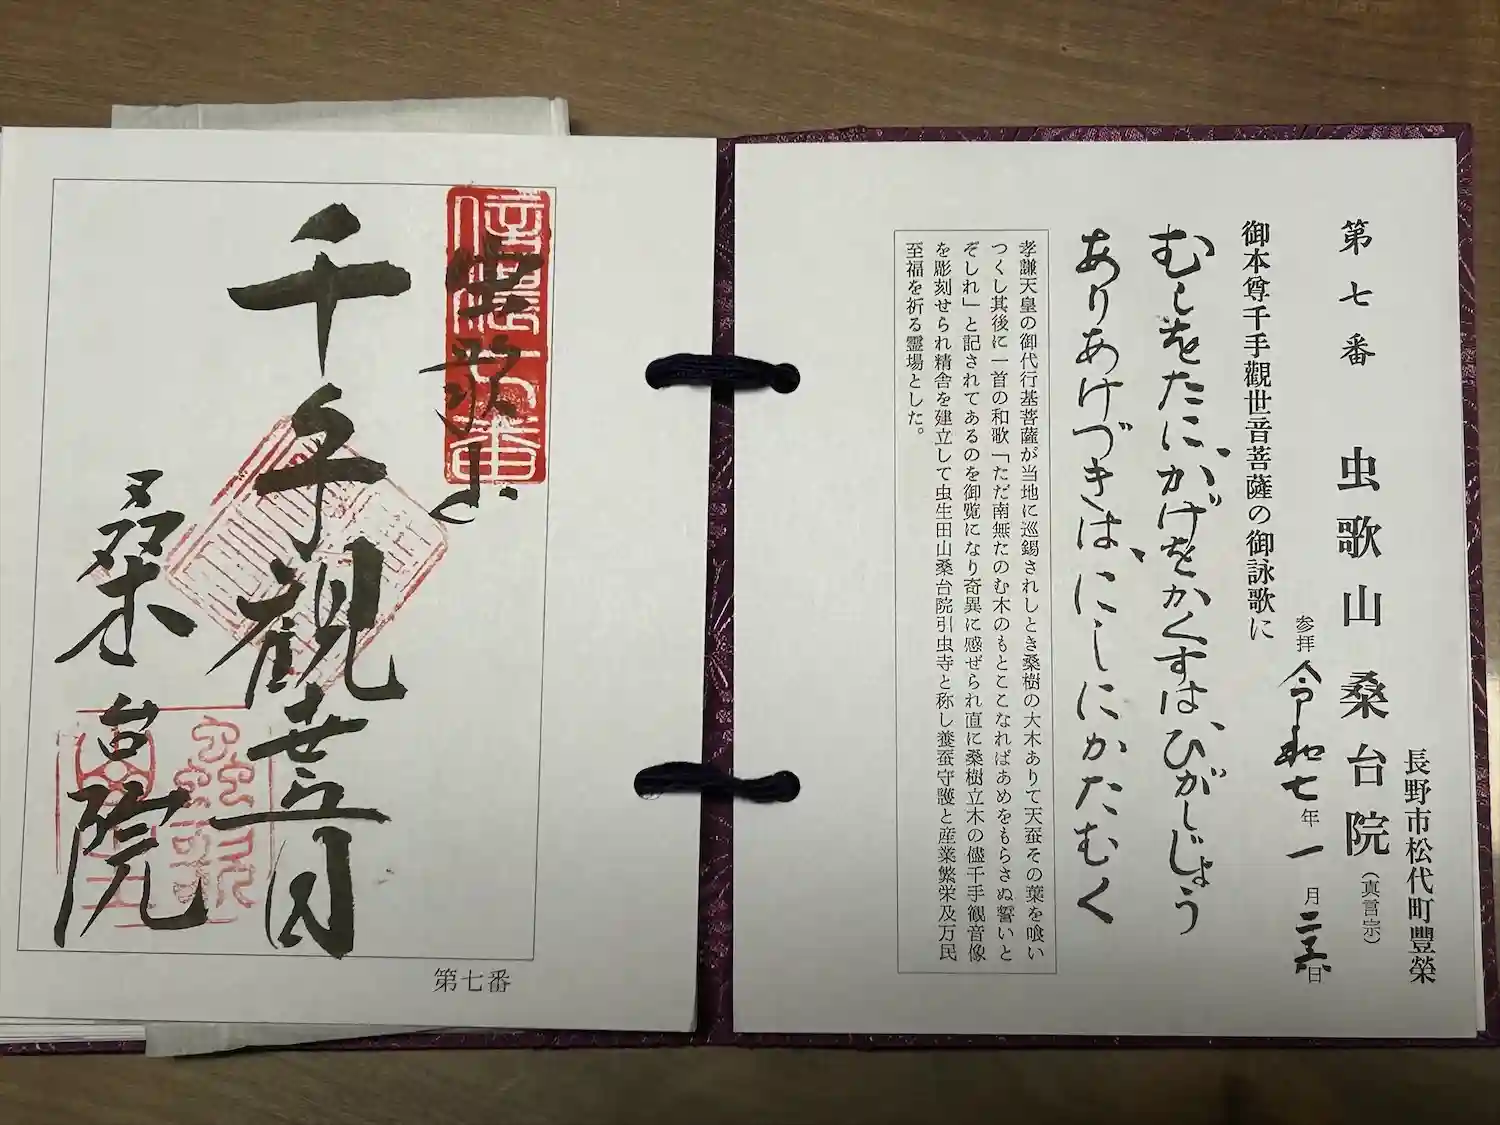 長野市松代町豐榮
第七番 虫歌山桑台院（真言宗）
参拝 令和七年一月二六日
御本尊千手觀世音菩薩の御詠歌に
むしをたに、かげをかくすは、ひがしじょう
ありあけづきは、にしにかたむく
孝謙天皇の御代行基菩薩が当地に巡錫されしとき桑樹の大木ありて天蚕その葉を喰い
つくし其後に一首の和歌「ただ南無たのむ木のもとここなればあめをもらさぬ誓いと
ぞしれ」と記されてあるのを御覧になり奇異に感ぜられ直に桑樹立木の儘千手観音像
を彫刻せられ精舎を建立して虫生田山桑台院引虫寺と称し養蚕守護と産業繁栄及万民
至福を祈る霊場とした。
信濃七番
虫歌山
千手観世音
桑台院
第七番